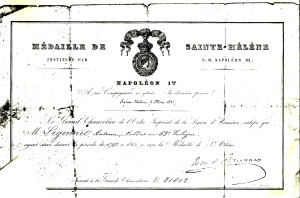 MÉDAILLE DE SAINTE-HÉLÈNE
INSTITUÉE PAR S. M. NAPOLÉON III.
NAPOLÉON 1er
A ses Compagnons de gloire, Sa dernière pensée!
Sainte-Hélène, 5 Mai 1821
Le Grand Chancelier de l'Ordre Impérial de la Légion d'Honneur, certifie que
M
ayant servi durant la période de 1792 à 1815, a reçu la Médaille de Ste Hélène.
Inscrit à la Grande Chancellerie No